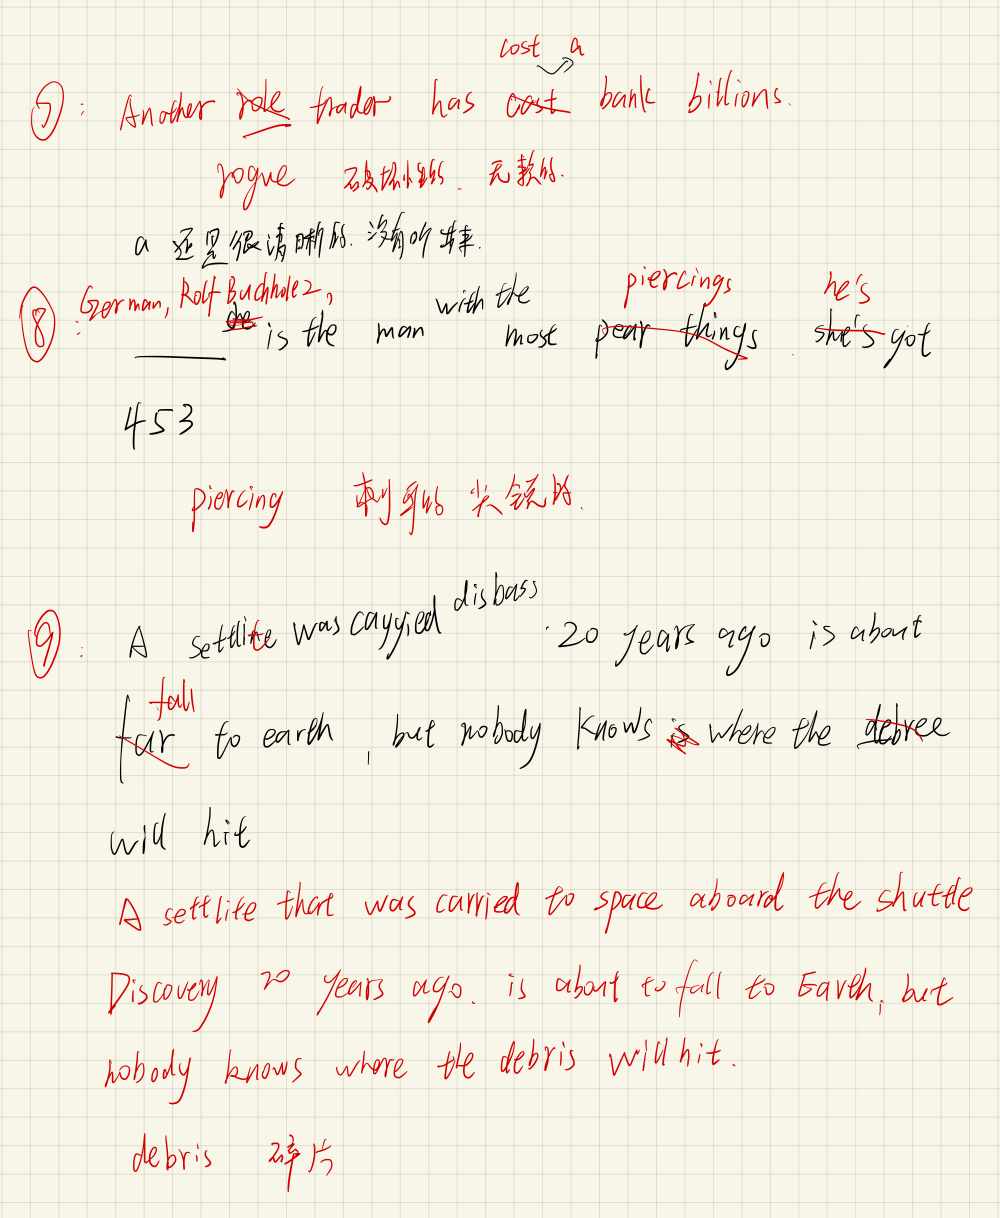 cost a
⑤: Another role trader has cost bank billions.
rogue 破坏性的. 无赖的.
a 还是很清晰的. 没有听出来.
German, Rolf Buchholz, piercings he's
⑧: he is the man with the most pear things. she's got
453
piercing 刺耳的 尖锐的.
⑨: A settlite was cayyied disbass. 20 years ago is about
fall
far to earth, but nobody knows is where the debree
will hit
A settlite that was carried to space aboard the shuttle
Discovery 20 years ago. is about to fall to Earth, but
nobody knows where the debris will hit.
debris 碎片